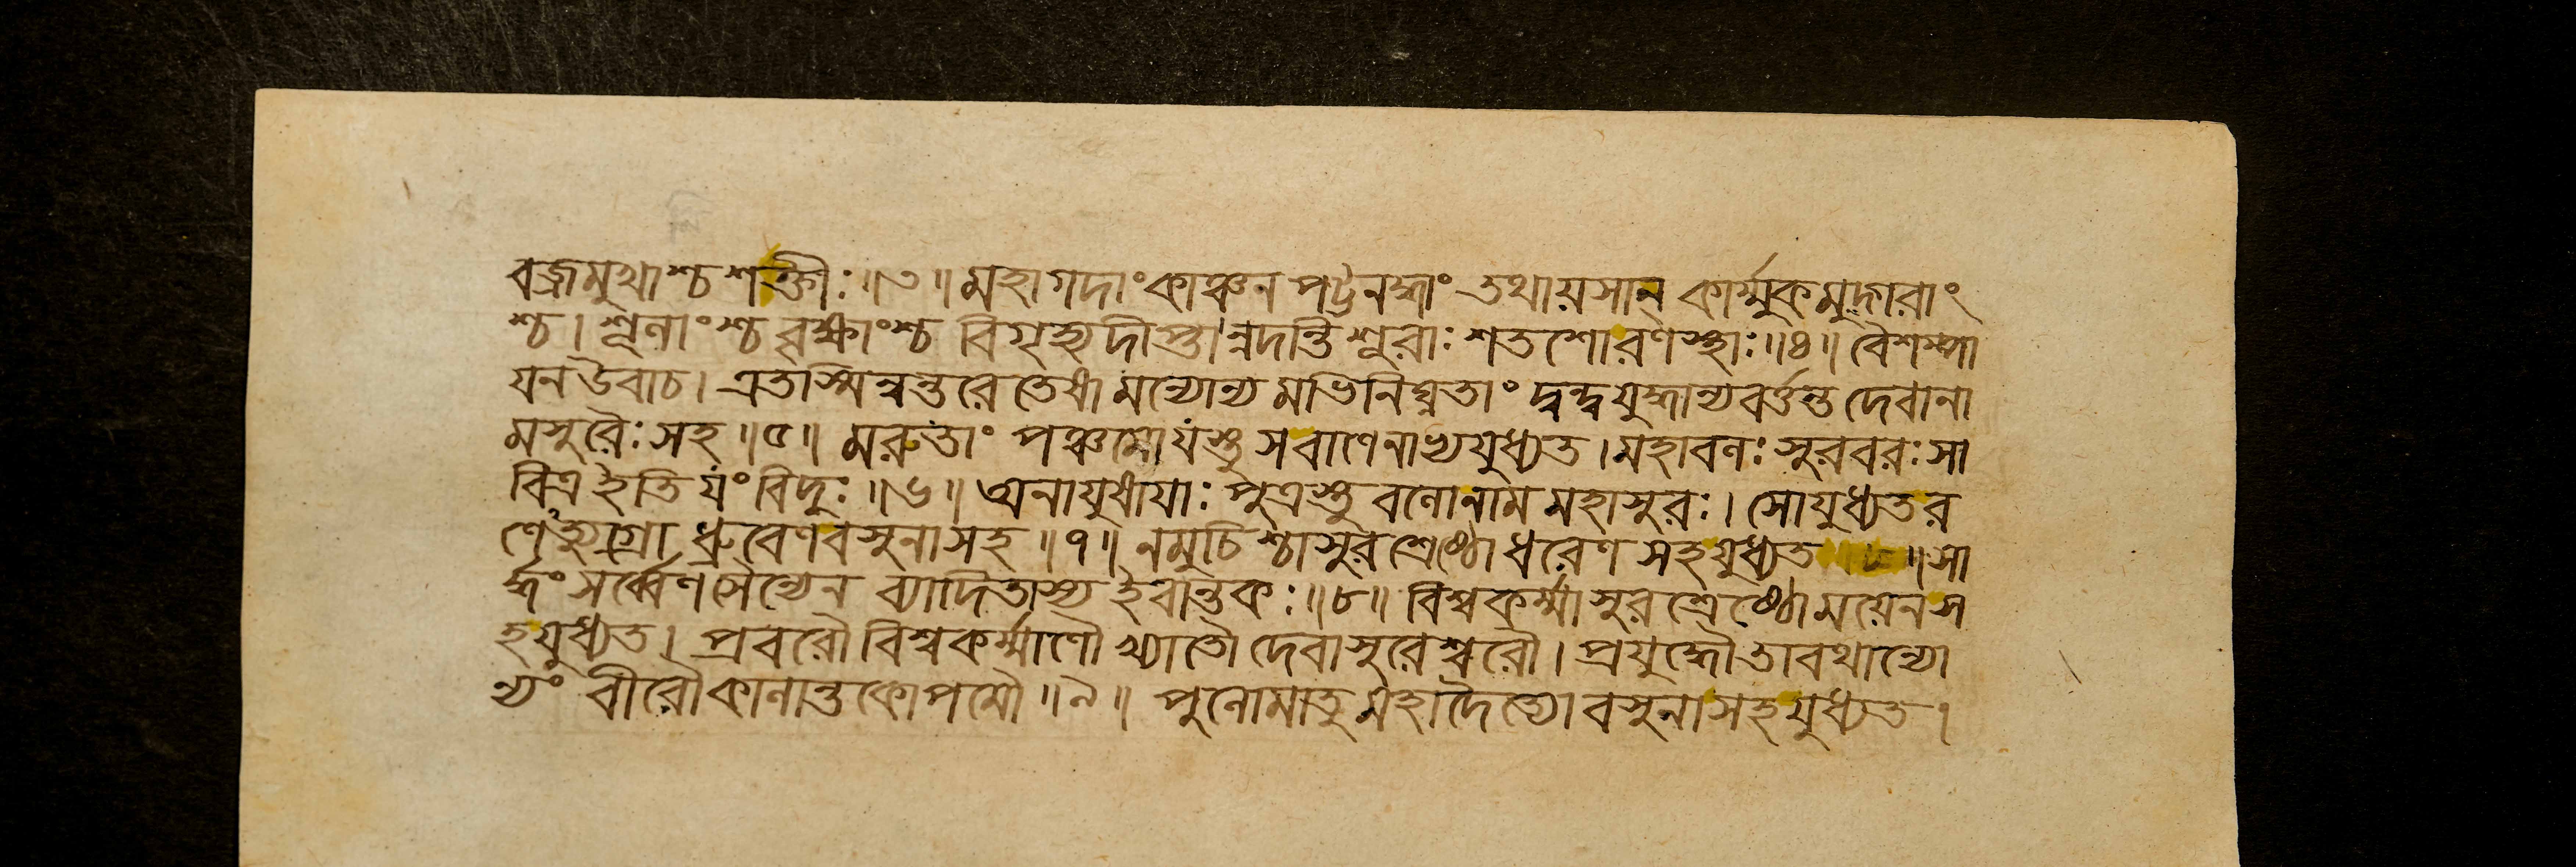 বজ্রমুখাশ্চ শক্তীঃ ॥৩॥ মহাগদাং কাঞ্চন পট্টনদ্ধাং তথায়সান্ কার্ম্মুকমুদ্গরাং
শ্চ। শূলাংশ্চ বৃক্ষাংশ্চ বিগৃহ্য দীপ্তান্নদন্তি শূরাঃ শতশো রণস্থাঃ ॥৪॥ বৈশম্পা
য়ন উবাচ। এতাস্মিন্নন্তরে তেষামন্যোন্যমভিনিঘ্নতাং দ্বন্দ্বযুদ্ধান্যবর্ত্তন্ত দেবানা
মসুরৈঃ সহ ॥৫॥ মরুতাং পঞ্চমো যস্তু স বাণেনাভ্যযুধ্যত। মহাবলঃ সুরবরঃ সা
বিত্র ইতি যং বিদুঃ ॥৬॥ অনায়ুষায়াঃ পুত্রস্তু বলো নাম মহাসুরঃ। সোযুধ্যত র
ণেঽত্যুগ্রো ধ্রুবেণ বসুনা সহ ॥৭॥ নমুচিশ্চাসুরশ্রেষ্ঠো ধরেণ সহ যুধ্যত ॥ সা
র্দ্ধং সর্ব্বেণ সৈন্যেন ব্যাদিতাস্য ইবান্তকঃ ॥৮॥ বিশ্বকর্ম্মাসুরশ্রেষ্ঠো ময়েন স
হ যুধ্যত। প্রবরৌ বিশ্বকর্ম্মাণৌ খ্যাতৌ দেবাসুরেশ্বরৌ। প্রযুদ্ধৌ তাবথান্যো
ন্যং বীরৌ কালান্তকোপমৌ ॥৯॥ পুলোমা তু মহাদৈত্যো বসুনা সহ যুধ্যত।